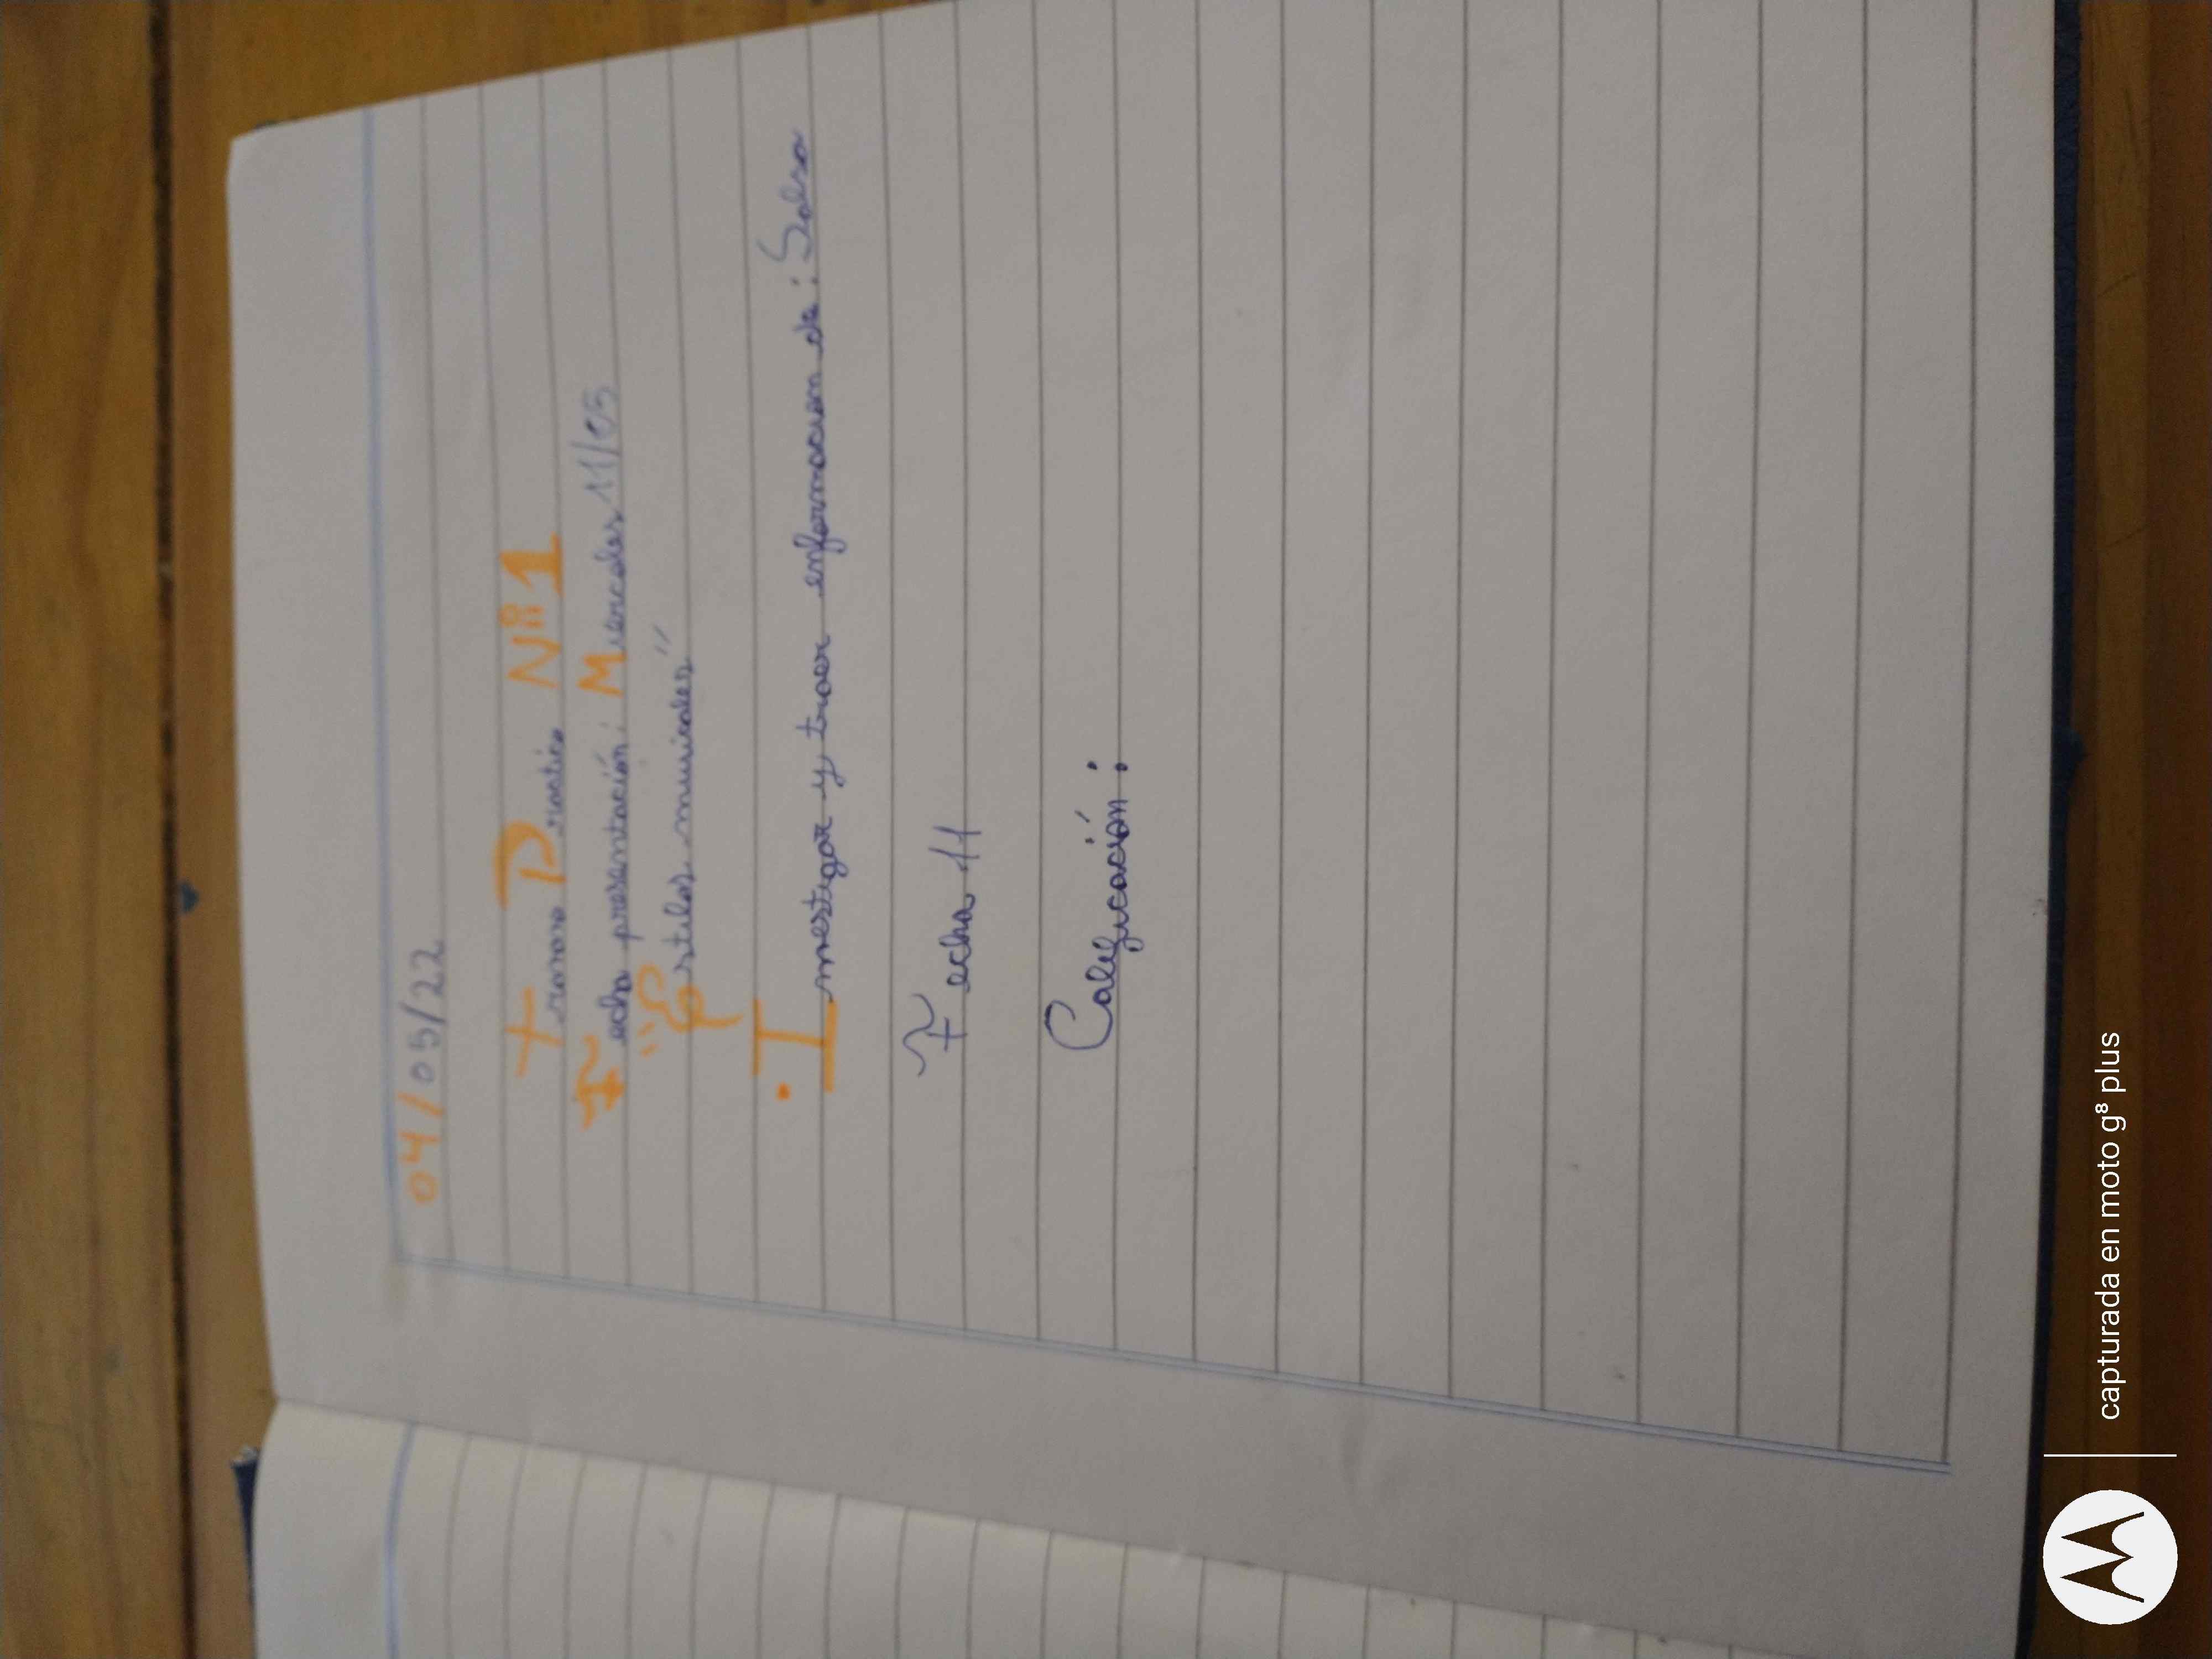 04/05/22
Practico N° 1
Fecha presentación: Miercoles 11/05
"Estilos musicales"
• Investigar y traer informacion de: Salsa
Fecha 11
Calificación:
capturada en moto g⁸ plus